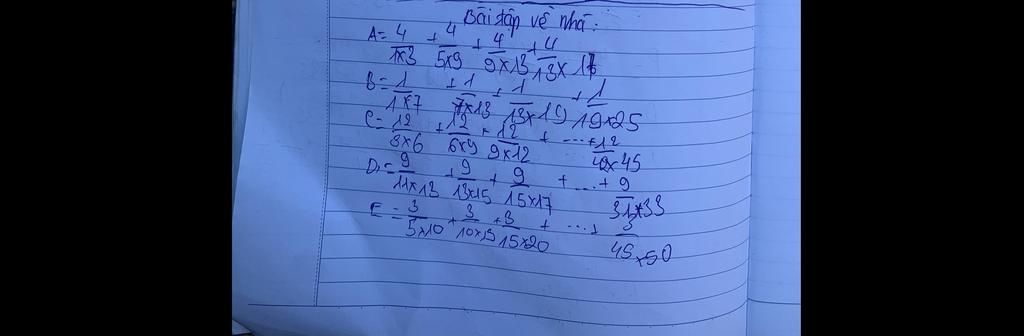 Bài tập về nhà:
A = 4/1×3 + 4/5×9 + 4/9×13 + 4/13×17
B = 1/1×7 + 1/7×13 + 1/13×19 + 1/19×25
C = 12/3×6 + 12/6×9 + 12/9×12 + ... + 12/42×45
D = 9/11×13 + 9/13×15 + 9/15×17 + ... + 9/31×33
E = 3/5×10 + 3/10×15 + 3/15×20 + ... + 3/45×50